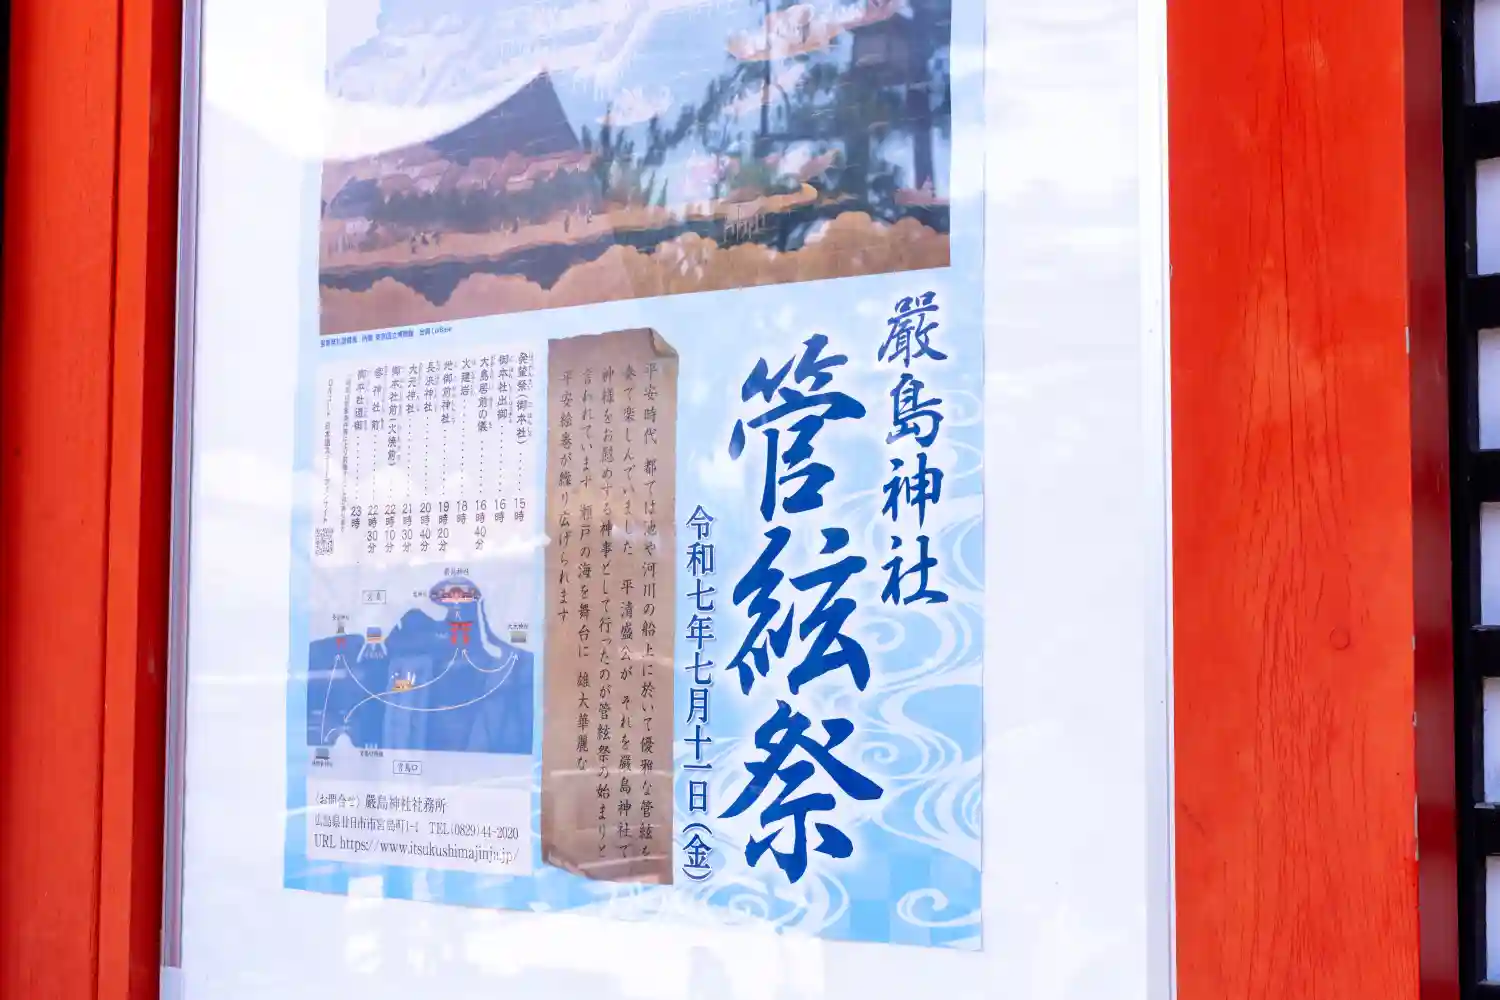 嚴島神社
管絃祭
令和七年七月十一日(金)
平安時代 都では池や河川の船上に於いて優雅な管絃を
奏で楽しんでいました 平清盛公が それを嚴島神社で
神様をお慰めする神事として行ったのが管絃祭の始まりと
言われています 瀬戸の海を舞台に 雄大華麗な
平安絵巻が繰り広げられます
発輦祭(御本社)・・・・・15時
御本社出御・・・・・16時
大鳥居前の儀・・・・・16時40分
火建岩・・・・・18時
地御前神社・・・・・19時20分
長浜神社・・・・・20時40分
大元神社・・・・・21時30分
御本社前(火焼前)・・・22時10分
客神社前・・・・・22時30分
御本社還御・・・・・23時
青島口
〈お問合せ〉 嚴島神社社務所
広島県廿日市市宮島町1-1 TEL(0829)44-2020
URL https://www.itsukushimajinja.jp/